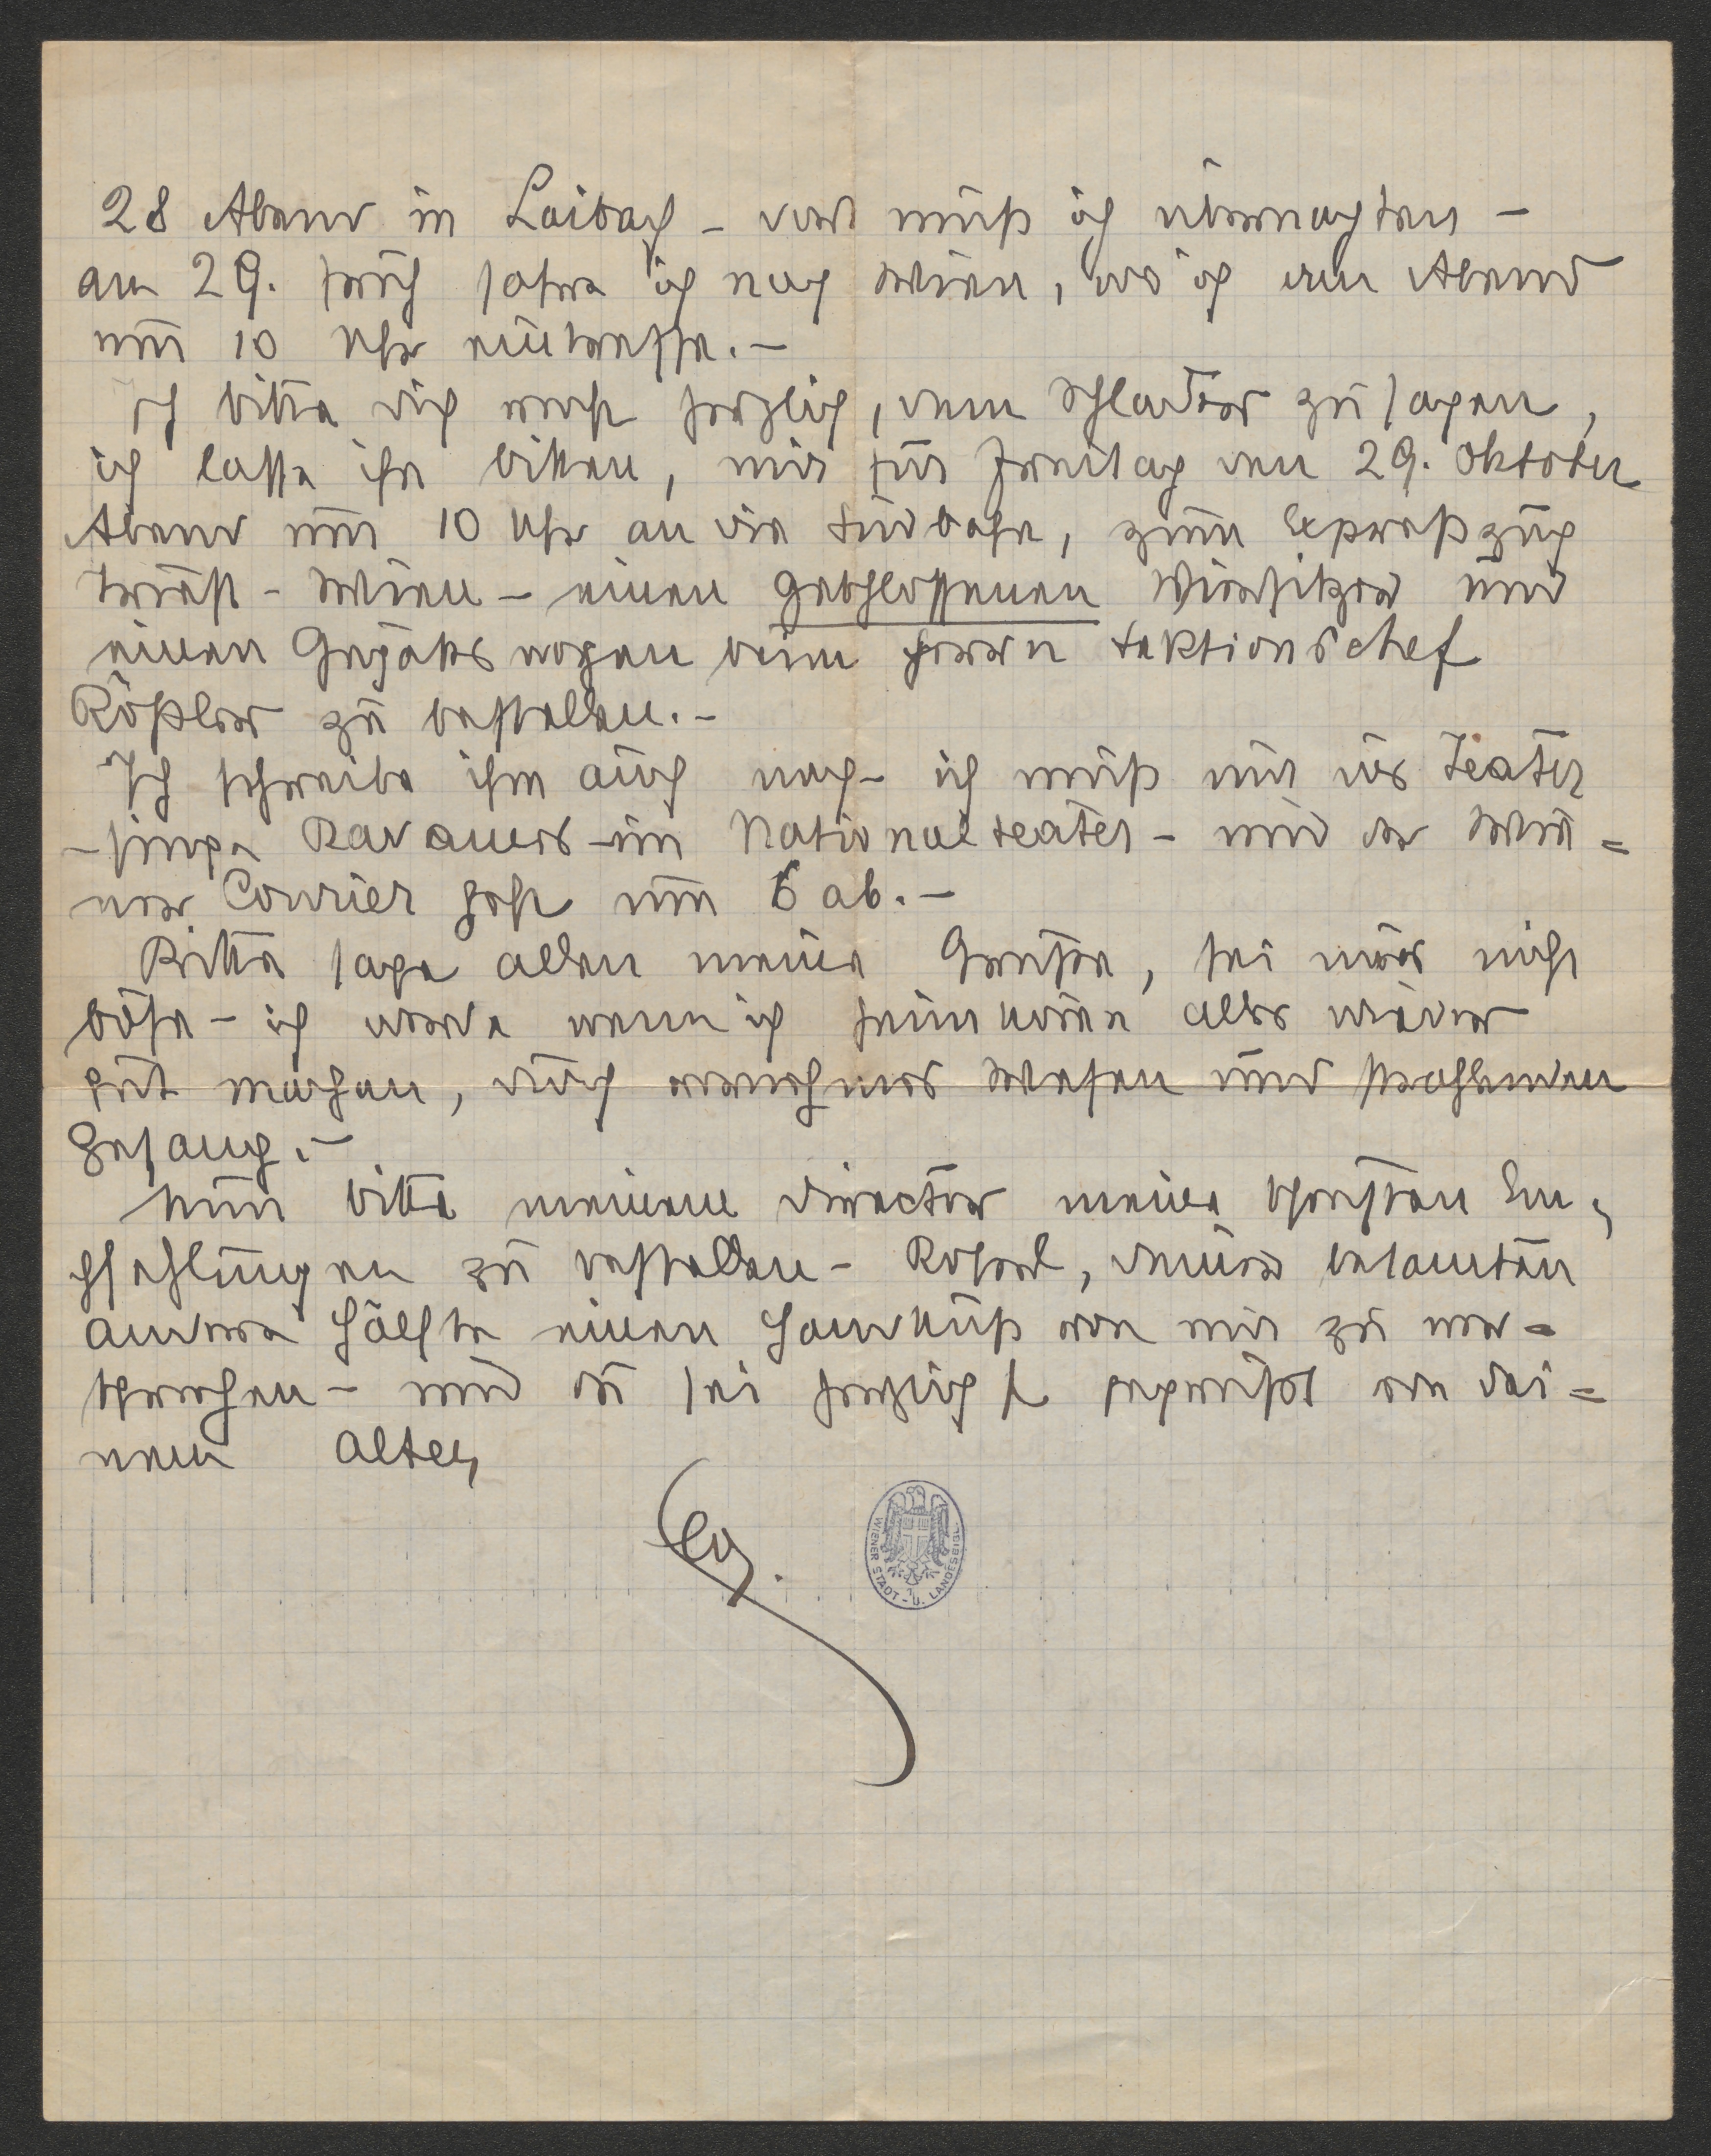 28 Abend in Laibach - dort muß ich übernachten -
am 29. früh fahre ich nach Wien, wo ich am Abend
um 10 Uhr eintreffe. -
Ich bitte dich recht herzlich, dem Schlader zu sagen,
ich lasse ihn bitten, mir für Freitag den 29. Oktober
Abend um 10 Uhr an die Südbahn, zum Expreßzug
Triest - Wien - einen geschlossenen Viersitzer und
einen Gepäckswagen beim Herrn Sektionschef
Rößler zu bestellen. -
Ich schreibe ihm auch noch - ich muß nur ins Teater
- singe Radames - im Nationalteater - und der Wie=
ner Courier geht um 6 ab. -
Bitte sage allen meine Grüße, sei mir nicht
böse - ich werde wenn ich heimkomme alles wieder
gut machen, durch vornehmes Wesen und strahlenden
Gesang. -
Nun bitte meinem Director meine schönsten Em=
pfehlungen zu bestellen - Rosert, deiner bekannten
andern Hälfte einen Handkuß von mir zu ver=
sprechen - und du sei herzlichst gegrüßt von dei=
nem alten
WIENER STADT- U. LANDESBIBL.